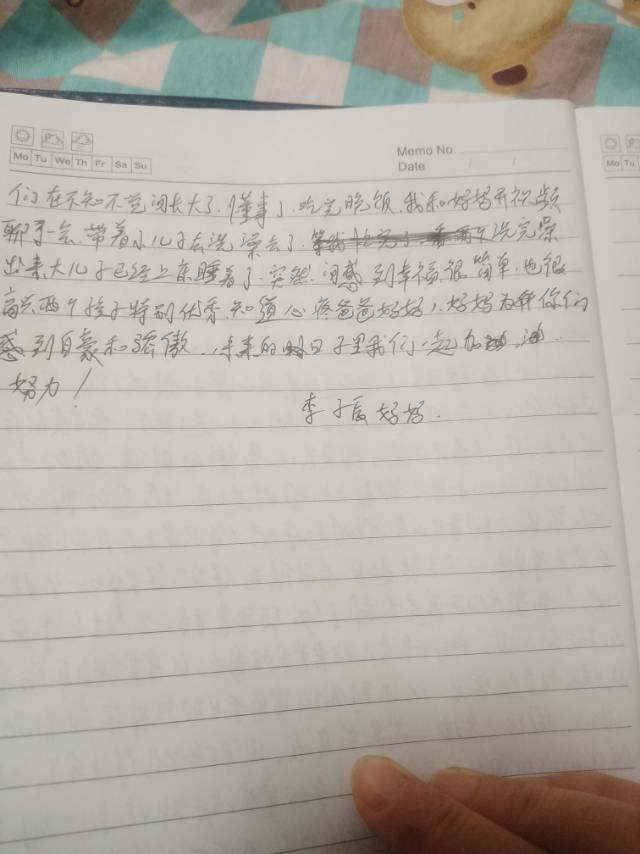 Memo No.
Mo Tu We Th Fr Sa Su
Date / /
Mo Tu
们在不知不觉间长大了,懂事了,吃完晚饭,我和好妈开视频
聊了一会,带着小儿子去洗澡去了,洗完澡
出来大儿子已经上床睡着了,突然间感到幸福很简单,也很
高兴两个孩子特别优秀,知道心疼爸爸妈妈,妈妈为你们
感到自豪和骄傲,未来的日子里我们一起加油
努力!
李子宸妈妈.